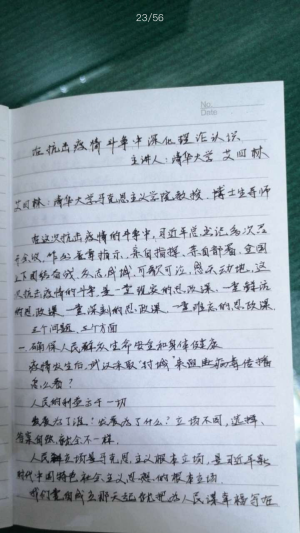 23/56
No.
Date
在抗击疫情斗争中深化理论认识
主讲人:清华大学 艾四林
艾四林:清华大学马克思主义学院教授、博士生导师
在这次抗击疫情的斗争中,习近平总书记多次召
开会议、作出重要指示、亲自指挥、亲自部署,全国
上下团结奋战,众志成城,可歌可泣,感天动地,这
次抗击疫情的斗争,是一堂现实的思政课,一堂鲜活
的思政课,一堂深刻的思政课,一堂难忘的思政课。
三个问题,三个方面
一、确保人民群众生命安全和身体健康
疫情发生后,武汉采取"封城"来阻断病毒传播
怎么看?
人民的利益高于一切
为了谁?为了什么?立场不同,选择、
答案自然就会不一样。
人民立场是马克思主义根本立场,是习近平新
时代中国特色社会主义思想的根本立场
我们党自成立那天起就把为人民谋幸福写在